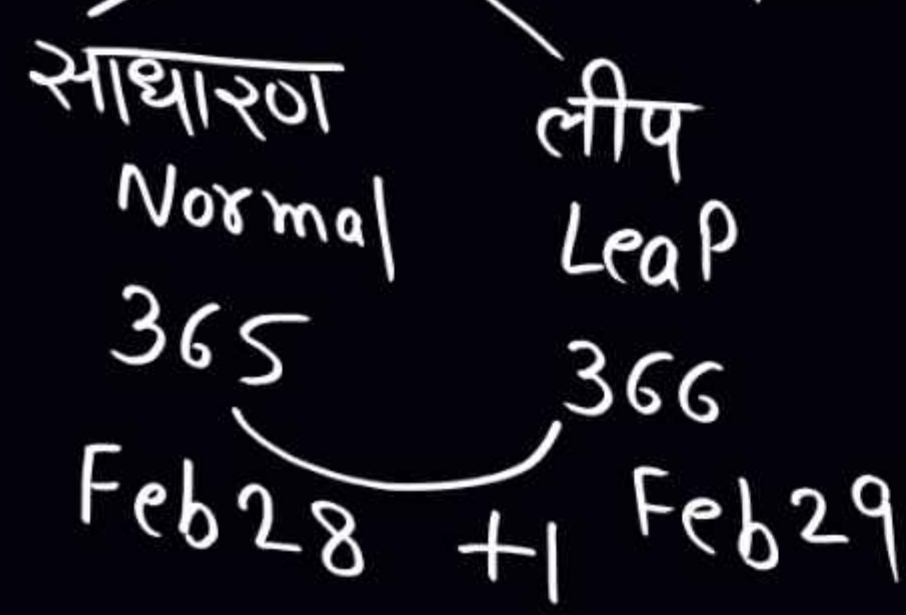 साधारण
Normal
365
Feb 28
+1
लीप
Leap
366
Feb 29